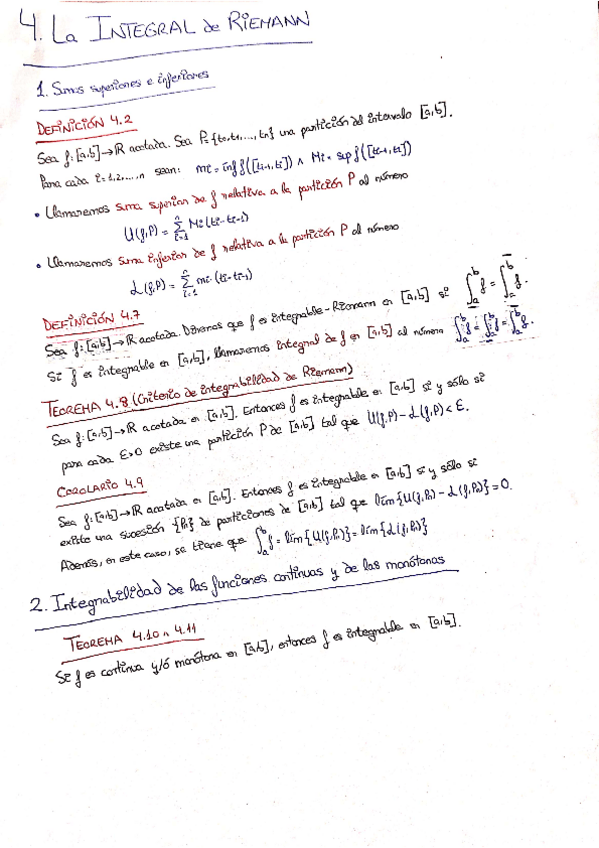 4. La INTEGRAL de RIEMANN
1. Sumas superiores e inferiores
DEFINICIÓN 4.2
Sea f: [a,b] → ℝ acotada. Sea P={t₀,t₁,...,tₙ} una partición del intervalo [a,b].
Para cada i=1,2,...,n sean: mᵢ = inf f([tᵢ₋₁,tᵢ]) ∧ Mᵢ = sup f([tᵢ₋₁,tᵢ])
• Llamaremos suma superior de f relativa a la partición P al número
U(f,P) = ∑ⁿᵢ₌₁ Mᵢ(tᵢ-tᵢ₋₁)
• Llamaremos suma inferior de f relativa a la partición P al número
L(f,P) = ∑ⁿᵢ₌₁ mᵢ(tᵢ-tᵢ₋₁)
DEFINICIÓN 4.7
Sea f: [a,b] → ℝ acotada. Diremos que f es integrable-Riemann en [a,b] si ∫̲ₐᵇ f = ∫̅ₐᵇ f.
Si f es integrable en [a,b], llamaremos integral de f en [a,b] al número ∫ₐᵇ f = ∫̲ₐᵇ f = ∫̅ₐᵇ f.
TEOREMA 4.8 (Criterio de integrabilidad de Riemann)
Sea f: [a,b] → ℝ acotada en [a,b]. Entonces f es integrable en [a,b] si y sólo si
para cada ε>0 existe una partición P de [a,b] tal que U(f,P) - L(f,P) < ε.
COROLARIO 4.9
Sea f: [a,b] → ℝ acotada en [a,b]. Entonces f es integrable en [a,b] si y sólo si
existe una sucesión {Pₙ} de particiones de [a,b] tal que lím{U(f,Pₙ) - L(f,Pₙ)} = 0.
Además, en este caso, se tiene que ∫ₐᵇ f = lím{U(f,Pₙ)} = lím{L(f,Pₙ)}
2. Integrabilidad de las funciones continuas y de las monótonas
TEOREMA 4.10 ∧ 4.11
Si f es continua y/ó monótona en [a,b], entonces f es integrable en [a,b].